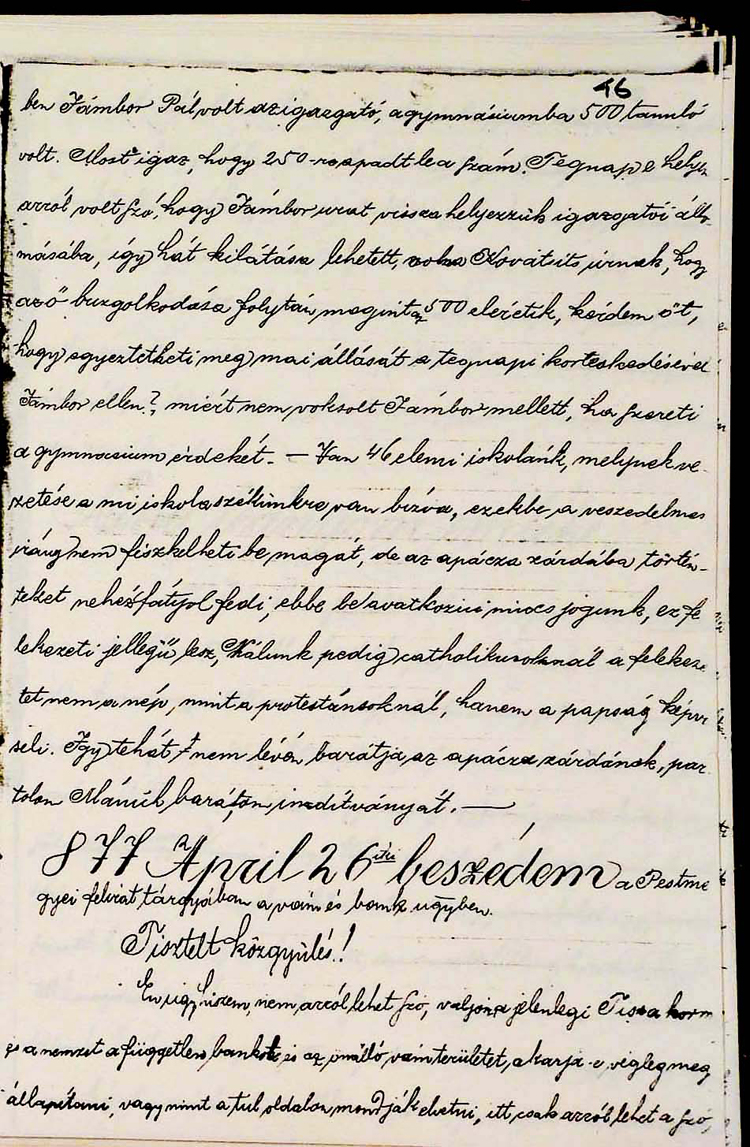 46
ben Jámbor Pál volt az igazgató, a gymnásiumba 500 tanuló
volt. Most igaz, hogy 250-re apadt le a szám. Tegnap e helyen
arról volt szó, hogy Jámbor urat vissza helyezzük igazgatói állo-
másába, így hát kilátása lehetett volna Kovátsits úrnak, hogy
az ő buzgolkodása folytán megint az 500 eléretik, kérdem őt,
hogy egyeztetheti meg mai állását a tegnapi korteskedésével
Jámbor ellen?, miért nem voksolt Jámbor mellett, ha szereti
a gymnasium érdekét. — Van 46 elemi iskolánk, melynek ve-
zetése a mi iskolaszékünkre van bízva, ezekbe a veszedelmes
irány nem fészkelheti be magát, de az apácza zárdába történ-
teket nehéz fátyol fedi, ebbe be avatkozni nincs jogunk, ez fe
lekezeti jellegű lesz, Nálunk pedig catholikusoknál a feleke-
tet nem a nép, mint a protestánsoknál, hanem a papság képvi
seli. Így tehát nem lévén barátja az apácza zárdának, pár
tolom Mánúl barátom inditványát. —
877 April 26iki beszédem a Pestme
gyei felirat tárgyában a vám és bank ügyben.
Tisztelt közgyülés!
Én ugy hiszem, nem arról lehet szó, valjon a jelenlegi Tisza korm
és a nemzet a független bankot és az önálló vámterületet, akarja-e végleg meg
állapítani, vagy mint a tul oldalon mondják elvetni, itt csak arról lehet a szó,